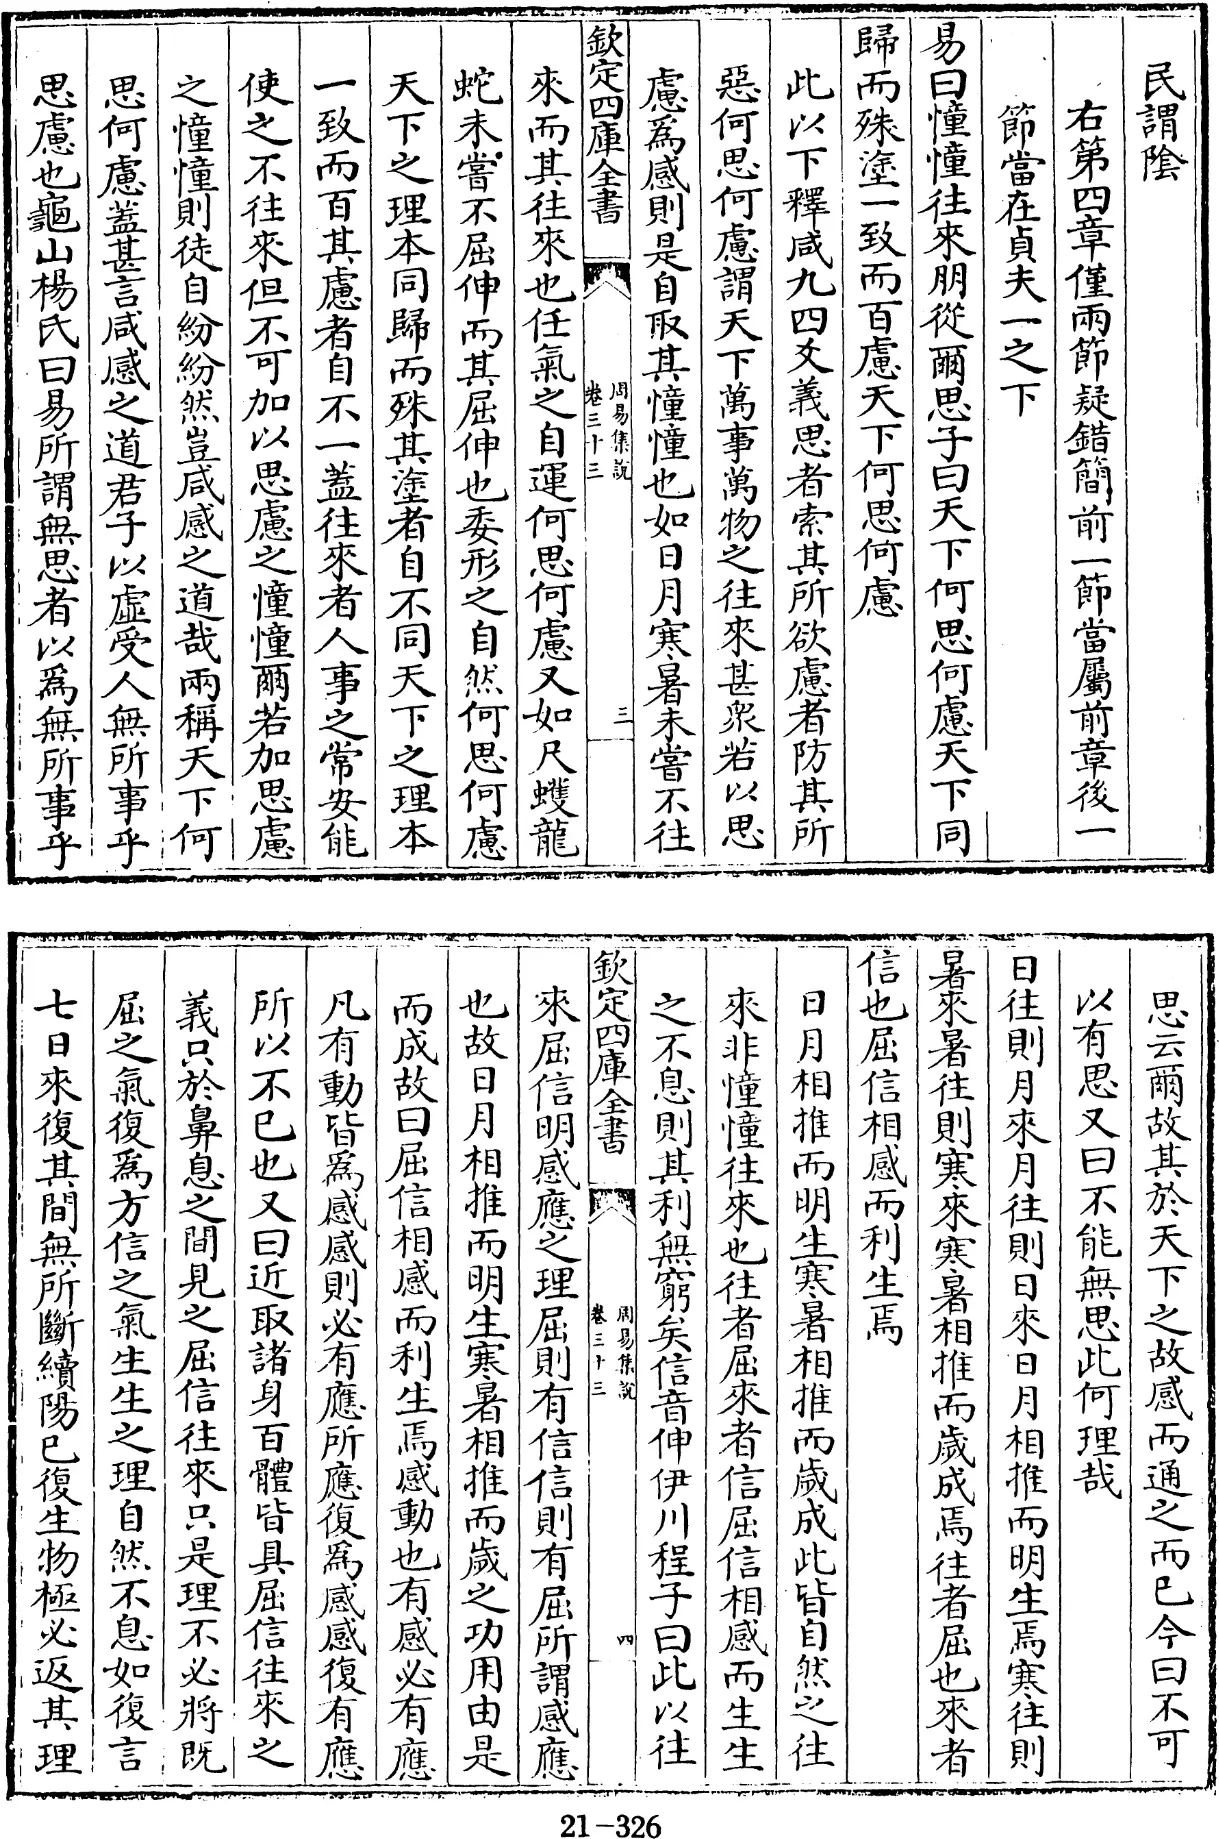 民謂陰
右第四章僅兩節疑錯簡前一節當屬前章後一
節當在貞夫一之下
易曰憧憧往來朋從爾思子曰天下何思何慮天下同
歸而殊塗一致而百慮天下何思何慮
此以下釋咸九四爻義思者索其所欲慮者防其所
惡何思何慮謂天下萬事萬物之往來甚衆若以思
慮為感則是自取其憧憧也如日月寒暑未嘗不往
欽定四庫全書
周易集說
卷三十三
三
來而其往來也任氣之自運何思何慮又如尺蠖龍
蛇未嘗不屈伸而其屈伸也委形之自然何思何慮
天下之理本同歸而殊其塗者自不同天下之理本
一致而百其慮者自不一蓋往來者人事之常安能
使之不往來但不可加以思慮之憧憧爾若加思慮
之憧憧則徒自紛紛然豈咸感之道哉兩稱天下何
思何慮蓋甚言咸感之道君子以虛受人無所事乎
思慮也龜山楊氏曰易所謂無思者以爲無所事乎
思云爾故其於天下之故感而通之而已今曰不可
以有思又曰不能無思此何理哉
日往則月來月往則日來日月相推而明生焉寒往則
暑來暑往則寒來寒暑相推而歲成焉往者屈也來者
信也屈信相感而利生焉
日月相推而明生寒暑相推而歲成此皆自然之往
來非憧憧往來也往者屈來者信屈信相感而生生
之不息則其利無窮矣信音伸伊川程子曰此以往
欽定四庫全書
周易集說
卷三十三
四
來屈信明感應之理屈則有信信則有屈所謂感應
也故日月相推而明生寒暑相推而歲之功用由是
而成故曰屈信相感而利生焉感動也有感必有應
凡有動皆爲感感則必有應所應復爲感感復有應
所以不已也又曰近取諸身百體皆具屈信往來之
義只於鼻息之間見之屈信往來只是理不必將既
屈之氣復爲方信之氣生生之理自然不息如復言
七日來復其間無所斷續陽已復生物極必返其理
21-326